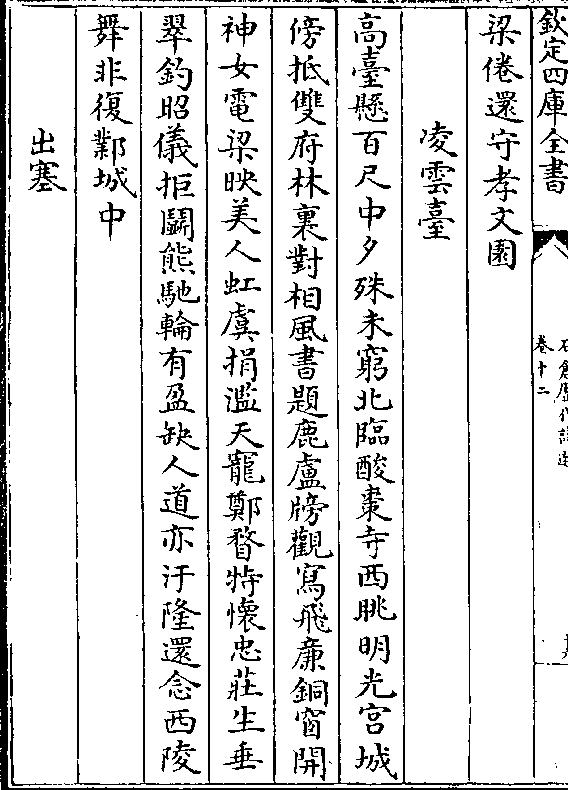 欽定四庫全書
卷十二
梁倦還守孝文園
凌雲臺
高臺懸百尺中夕殊未窮北臨酸棗寺西眺明光宮城
傍抵雙府林裏對相風書題鹿盧牓觀寫飛廉銅窗開
神女電梁映美人虹虞捐濫天寵鄭瞀特懷忠莊生垂
翠釣昭儀拒鬭熊馳輪有盈缺人道亦汙隆還念西陵
舞非復鄴城中
出塞